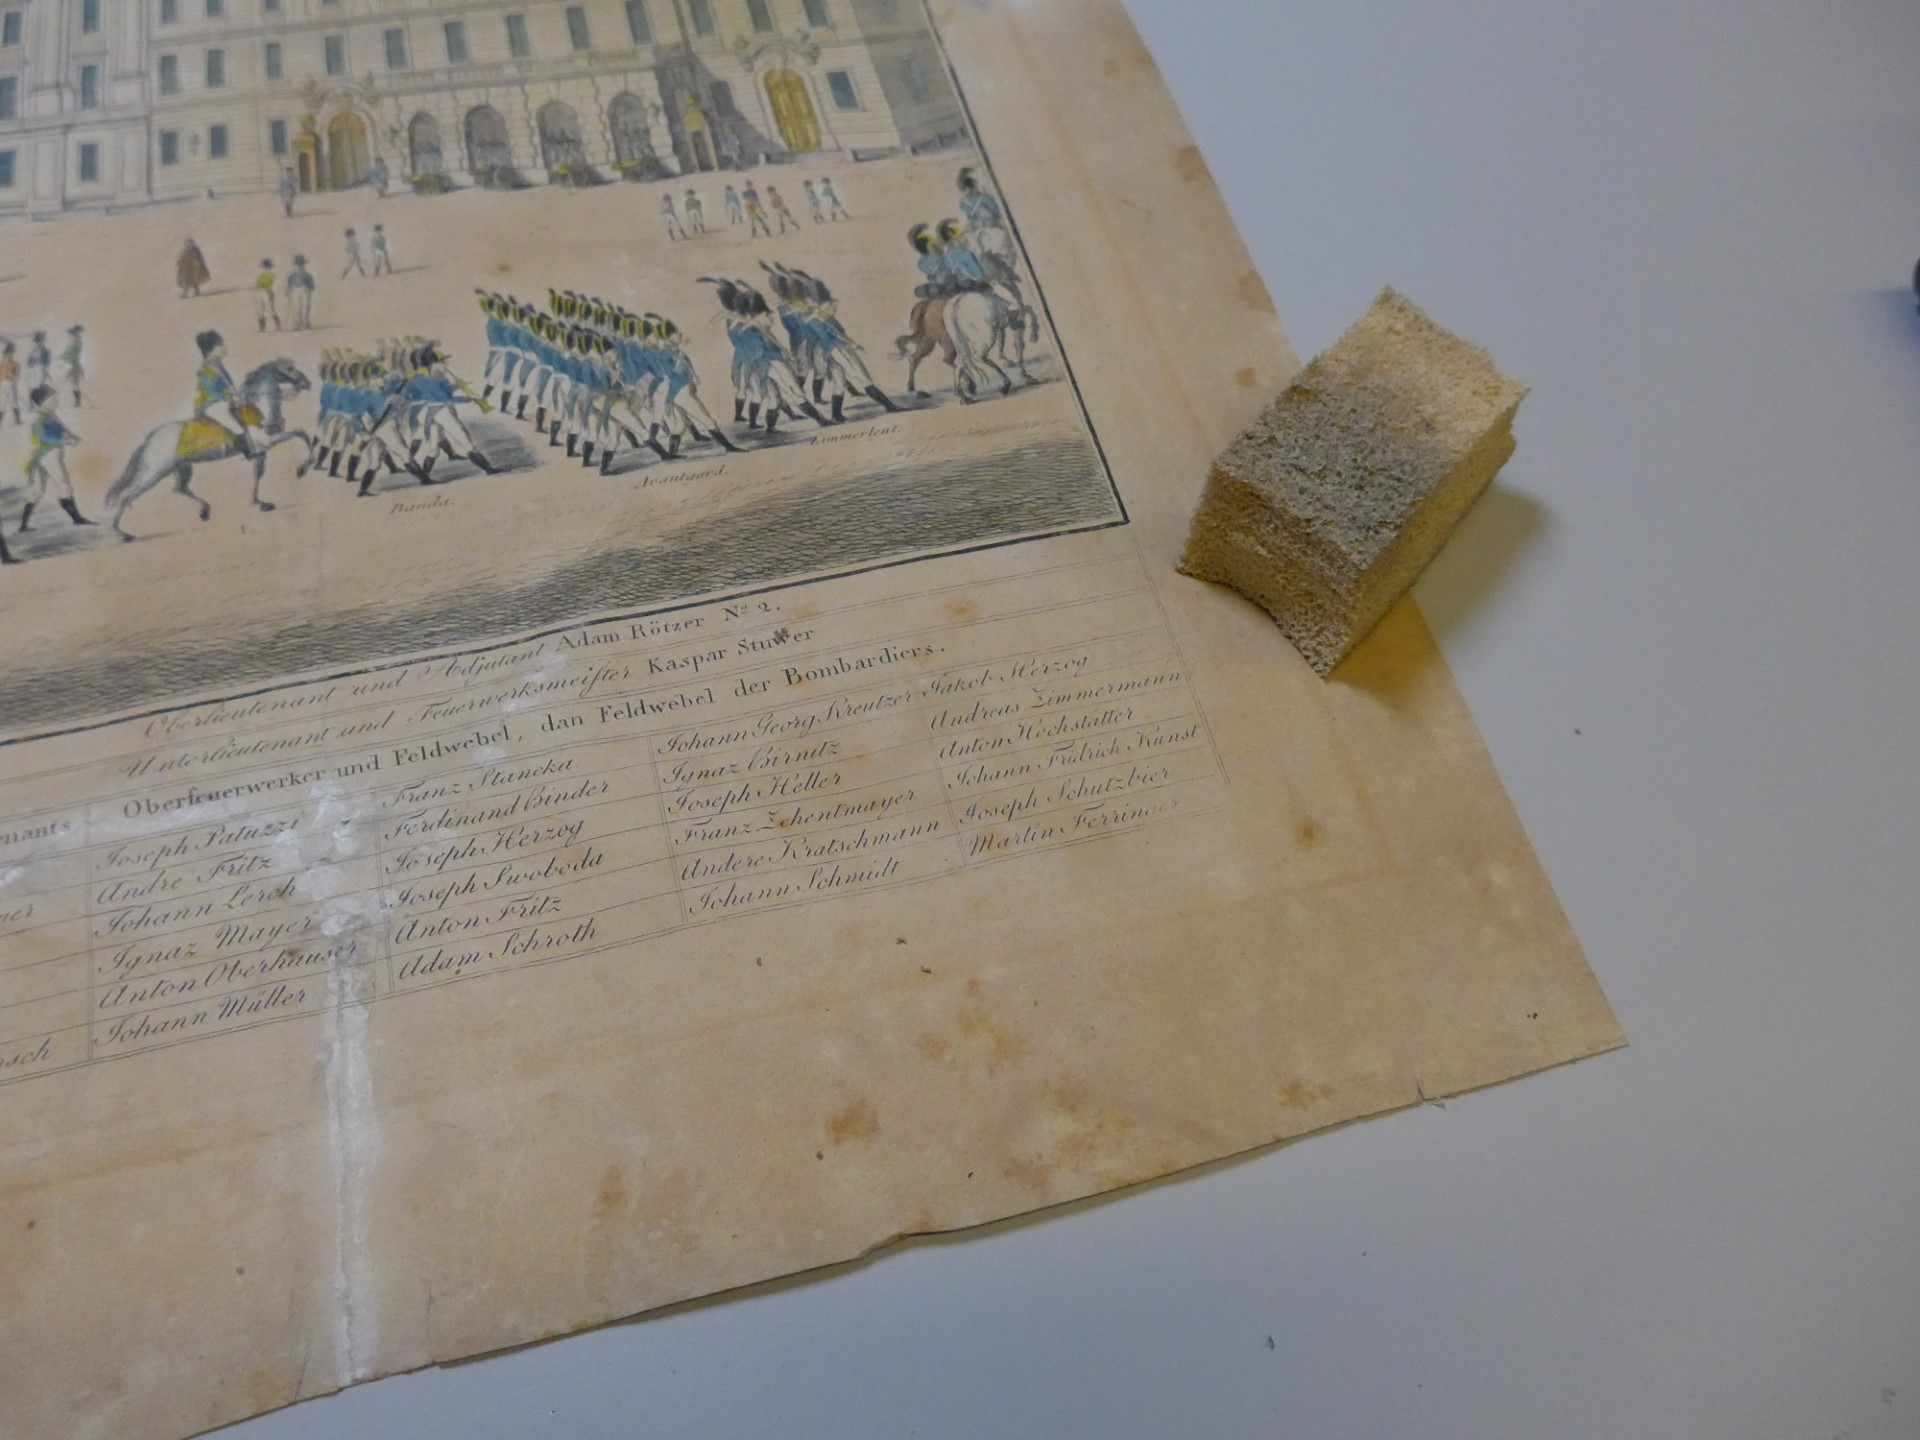 Zimmerleut.
Avantgard.
Banda.
1.
Oberlieutenant und Adjutant Adam Rötzer Nº 2.
Unterlieutenant und Feuerwerksmeister Kaspar Stuwer
Oberfeuerwerker und Feldwebel, dan Feldwebel der Bombardiers.
Joseph Patuzzi Franz Stancka Johann Georg Kreutzer Jakob Herzog
Andre Fritz Ferdinand Binder Ignaz Birnitz Andreas Zimmermann
Johann Lerch Joseph Herzog Joseph Heller Anton Hochstätter
Ignaz Mayer Joseph Swoboda Franz Zehentmayer Johann Fridrich Kunst
Anton Oberhauser Anton Fritz Andere Kratschmann Joseph Schutzbier
Johann Müller Adam Schroth Johann Schmidt Martin Ferringer